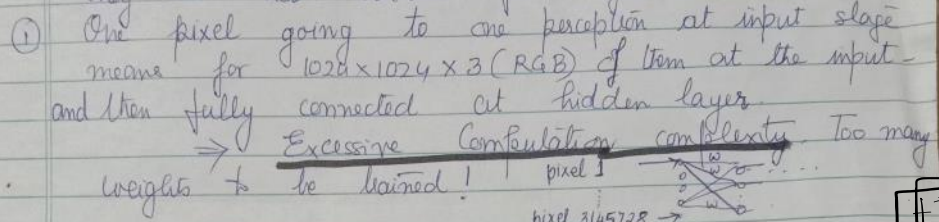 ① One pixel going to one perception at input stage
means for 1024 × 1024 × 3 (RGB) of them at the input
and then fully connected at hidden layer.
⇒ Excessive Computation complexity. Too many
weights to be trained! pixel 1 w
pixel 3145728 → w